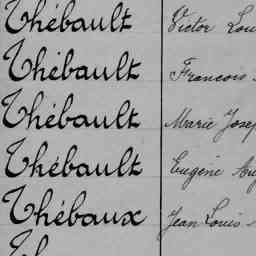 Thébault Victor
Thébault Francois
Thébault Marie
Thébault Eugène
Thébaux Jean Louis